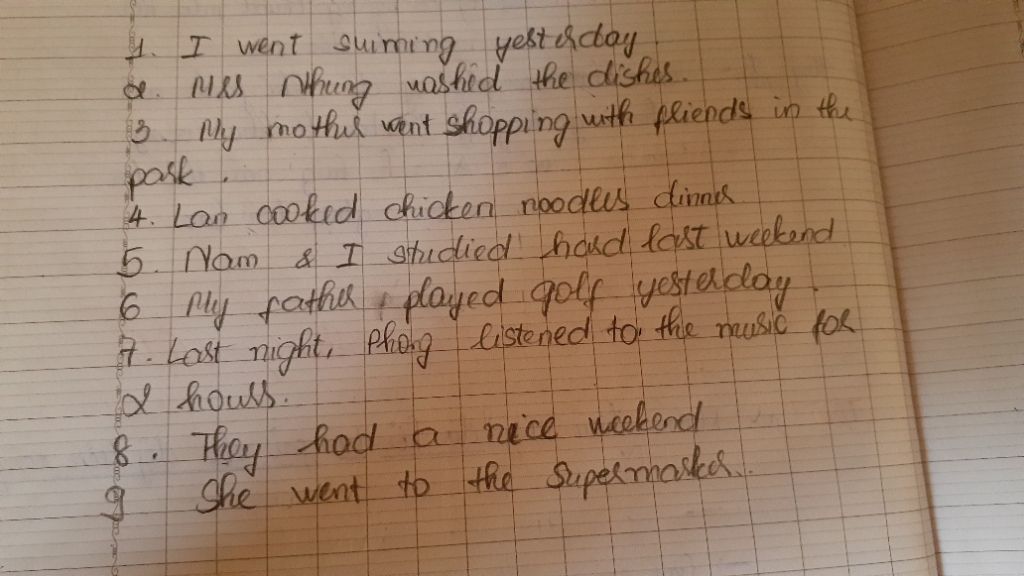 1. I went suiming yesterday
2. Mrs Nhung washed the dishes.
3 My mother went shopping with friends in the
park.
4. Lan cooked chicken noodles dinner
5. Nam & I studied hard last weekend
6 My father played golf yesterday.
7. Last night, Phong listened to the music for
2 hours.
8. They had a nice weekend
9 She went to the Supermarket..